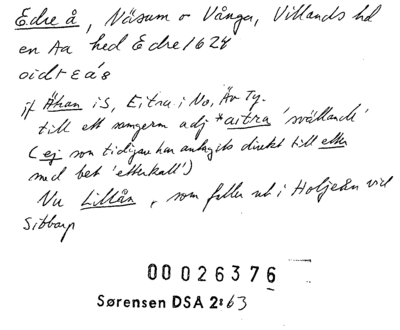 Edre å, Näsum o Vånga, Villands hd
en Aa hed Edre 1624
oidrea's
jf Ätran i S, Eitra i No, Äv Ty.
till ett samgerm adj *aitra 'svällande'
(ej som tidigare har antagits direkt till etter
med bet 'etterkall')
Nu Lillån, som faller ut i Holjeån vid
Sibbarp
00026376
Sørensen DSA 2:63